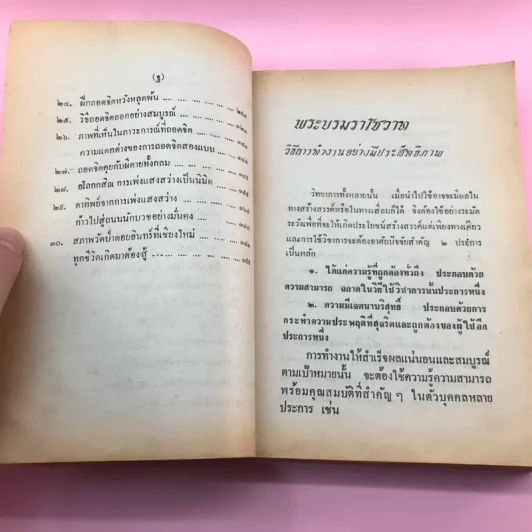 (ฐ)
๒๔. ฝึกถอดจิตหวังหลุดพ้น
๒๕. วิธีถอดจิตออกอย่างสมบูรณ์
๒๖. ภาพที่เห็นในภาวะการณ์ที่ถอดจิต
ความแตกต่างของการถอดจิตสองแบบ
๒๗. ถอดจิตคุยกับผีตายทั้งกลม
๒๘. อโลกกสิณ การเพ่งแสงสว่างเป็นนิมิต
๒๙. ตาทิพย์จากการเพ่งแสงสว่าง
ก้าวไปสู่ถนนนักบวชอย่างมั่นคง
๓๐. สภาพวัดป่าดอยอินทร์ที่เชียงใหม่
ทุกชีวิตเกิดมาต้องสู้
พระบรมราโชวาท
วิธีการทำงานอย่างมีประสิทธิภาพ
วิทยาการทั้งหลายนั้น เมื่อนำไปใช้อาจจะมีผลใน
ทางสร้างสรรค์หรือในทางเสื่อมก็ได้ จึงต้องใช้อย่างระมัด
ระวังเพื่อที่จะให้เกิดประโยชน์สร้างสรรค์แต่เพียงทางเดียว
และการใช้วิชาการจะต้องอาศัยปัจจัยสำคัญ ๒ ประการ
เป็นหลัก
๑. ได้แก่ความรู้ที่ถูกต้องทั่วถึง ประกอบด้วย
ความสามารถ ฉลาดในวิธีใช้วิชาการนั้นประการหนึ่ง
๒. ความมีเจตนาบริสุทธิ์ ประกอบด้วยการ
กระทำความประพฤติที่สุจริตและถูกต้องของผู้ใช้อีก
ประการหนึ่ง
การทำงานให้สำเร็จผลแน่นอนและสมบูรณ์
ตามเป้าหมายนั้น จะต้องใช้ความรู้ความสามารถ
พร้อมคุณสมบัติที่สำคัญ ๆ ในตัวบุคคลหลาย
ประการ เช่น